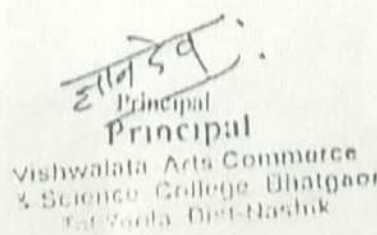 ज्ञानदेव
Principal
Principal
Vishwalata Arts Commerce
& Science College Bhatgaon
Tal Yeola Dist-Nashik